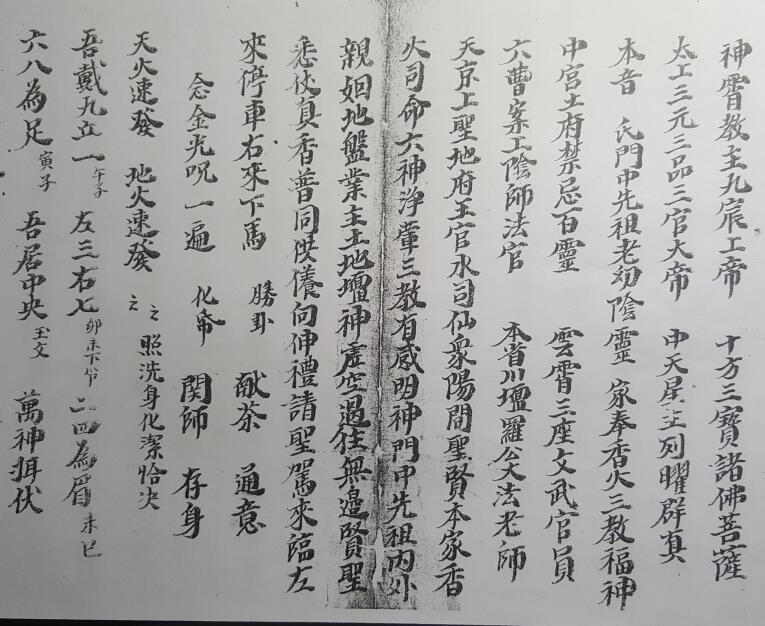 神霄教主九宸上帝 十方三寶諸佛菩薩
太上三元三品三官大帝 中天星主列曜群真
本音 氏門中先祖老幼陰靈 家奉香火三教福神
中宮土府禁忌百靈 雲霄三座文武官員
六曹案上陰師法官 本省川壇羅公大法老師
天京上聖地府王官水司仙衆陽間聖賢本家香
火司命六神淨葷三教有感明神門中先祖內外
親姻地盤業主土地壇神虛空過往無邊賢聖
悉伏真香普同供養向伸禮請聖駕來臨左
來停車右來下馬 勝卦 献茶 通意
念金光呪一遍 化帛 関師 存身
天火速發 地火速發 之之 照洗身化潔恰决
吾戴九立一 午子 左三右七 卯未下 二四為眉 未巳
六八為足 寅子 吾居中央 玉文 萬神拜伏